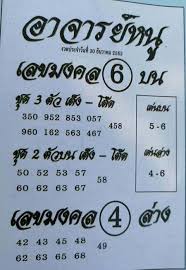 อาจารย์หนู
งวดประจำวันที่ 30 ธันวาคม 2563
เลขมงคล 6 บน
ชุด 3 ตัว เต็ง - โต๊ด
350 952 853 057
960 162 563 467
458
เด่นบน
5 - 6
ชุด 2 ตัวบน เต็ง - โต๊ด
50 52 53 57
60 62 63 67
58
เด่นล่าง
4 - 6
เลขมงคล 4 ล่าง
42 43 45 48
62 63 65 68
49